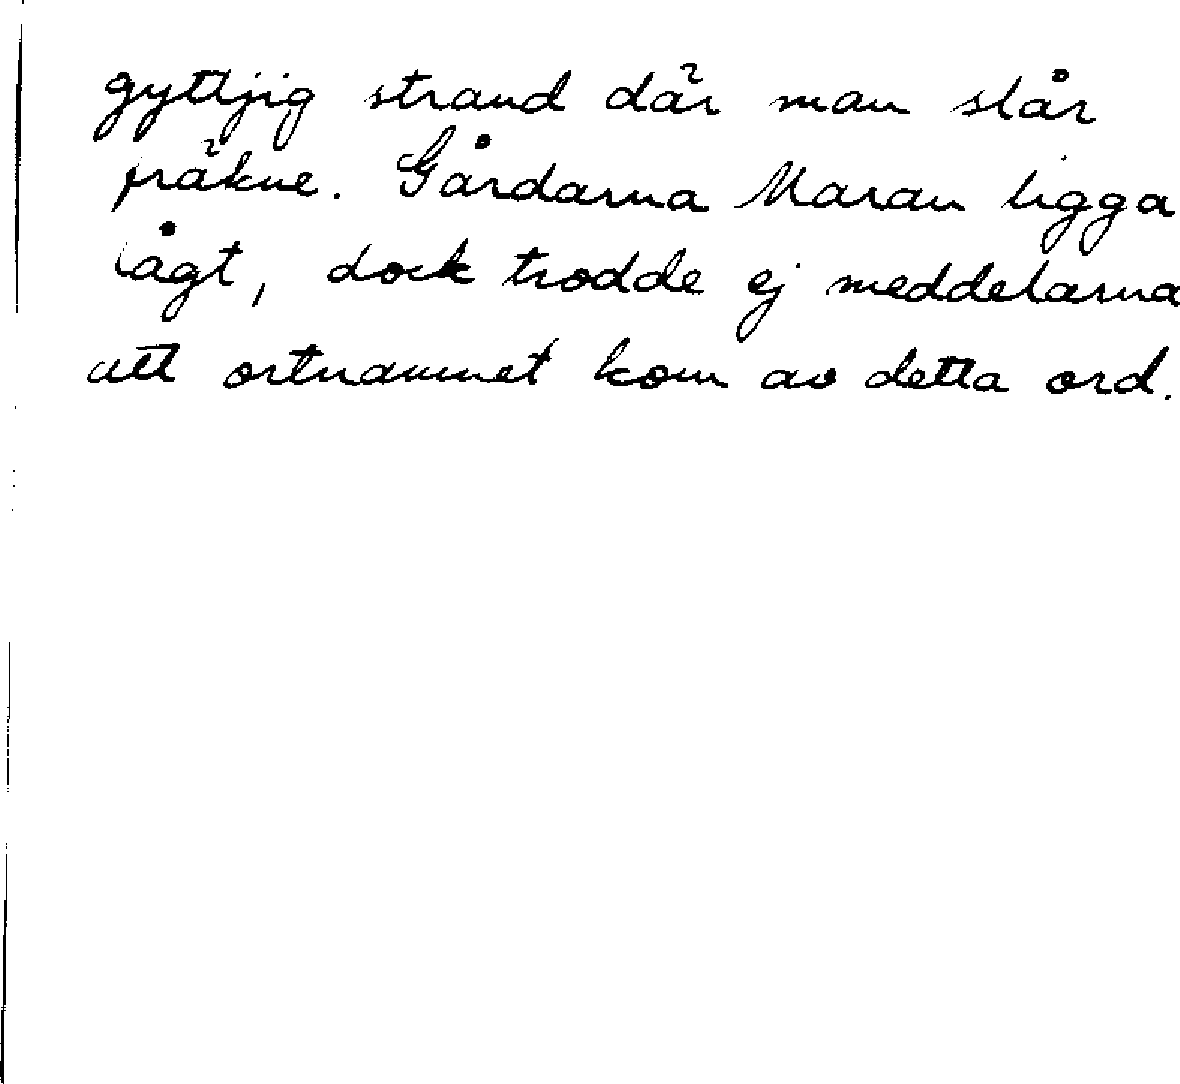 gyttjig strand där man slår
fräkne. Gårdarna Maran ligga
lågt, dock trodde ej meddelarna
att ortnamnet kom av detta ord.